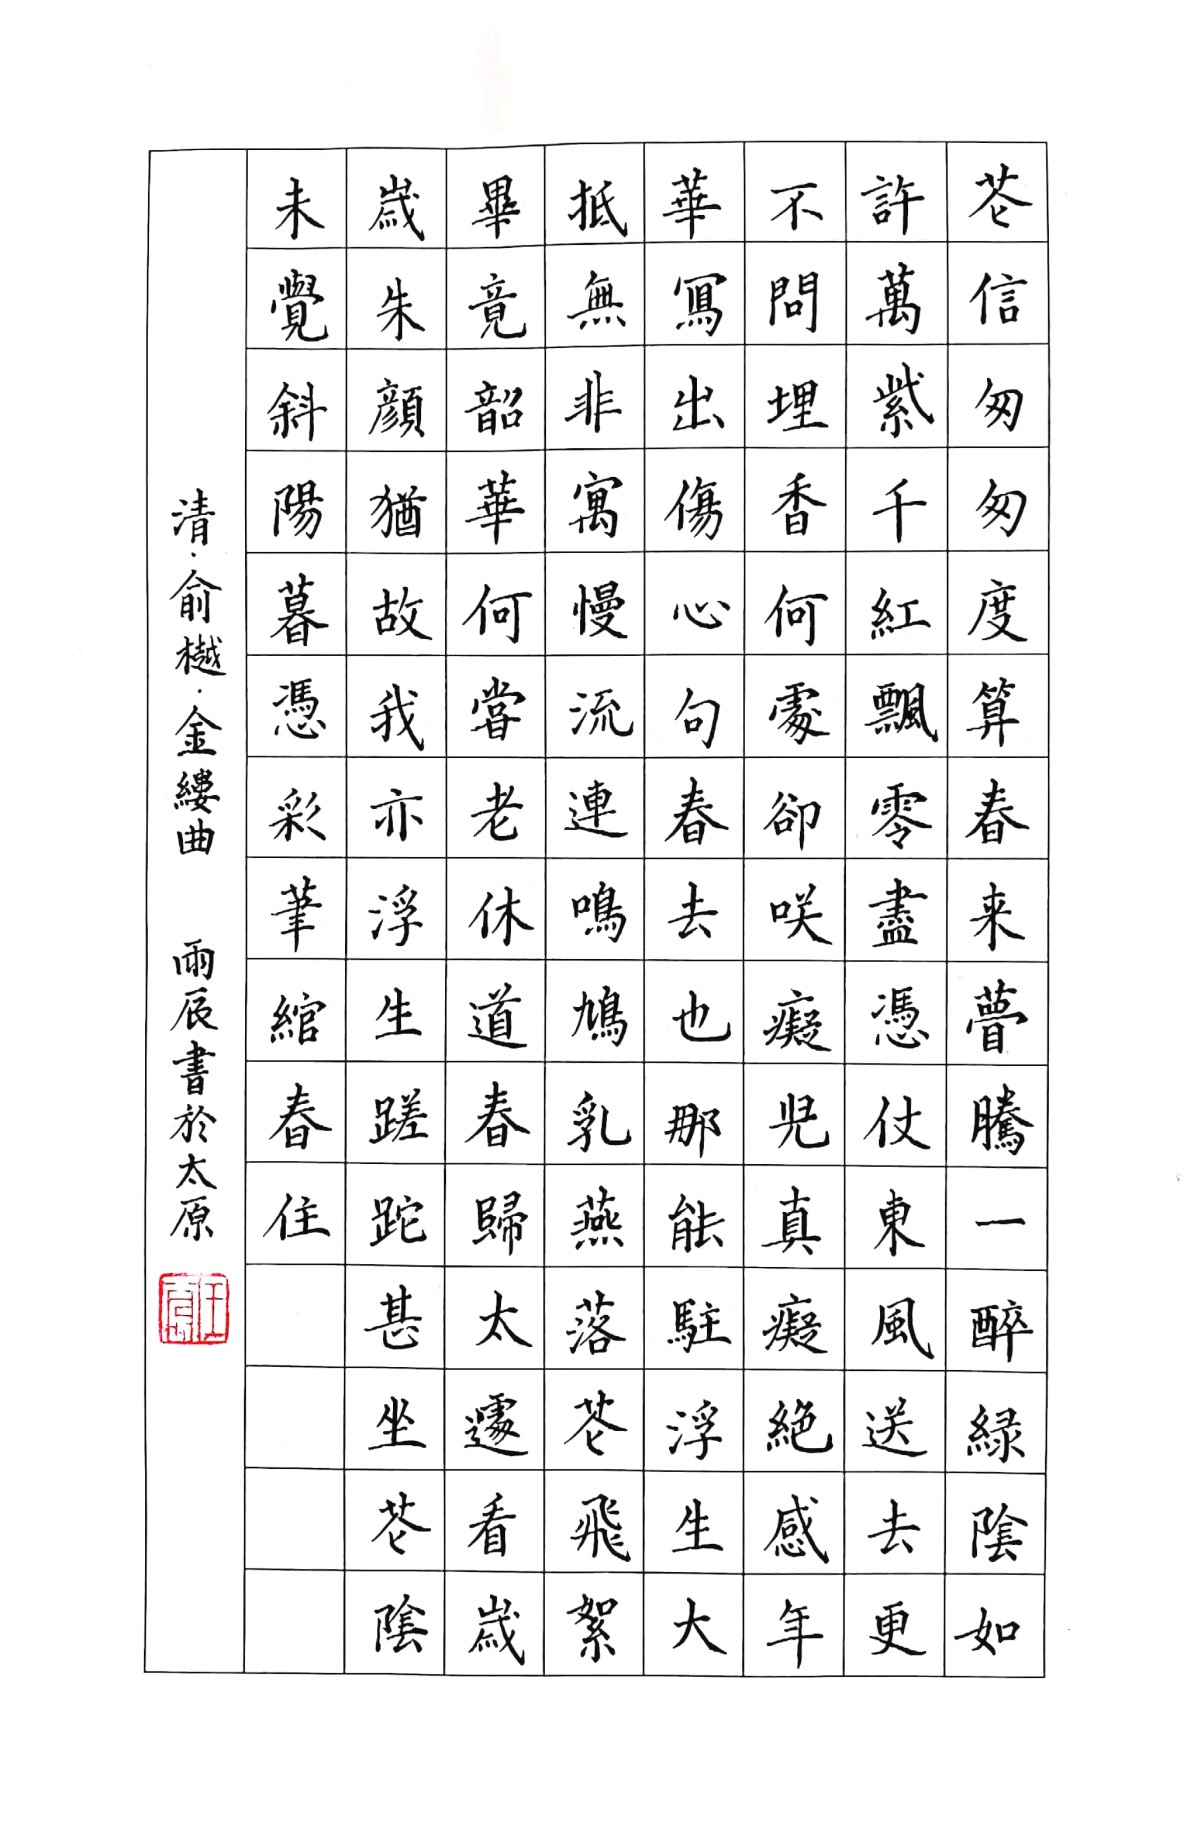 芲信匆匆度算春来瞢騰一醉緑陰如
許萬紫千紅飄零盡憑仗東風送去更
不問埋香何處卻咲癡児真癡絶感年
華寫出傷心句春去也那能駐浮生大
抵無非寓慢流連鳴鳩乳燕落芲飛絮
畢竟韶華何嘗老休道春歸太遽看歲
歲朱顔猶故我亦浮生蹉跎甚坐芲陰
未覺斜陽暮憑彩筆綰春住
清·俞樾·金縷曲 雨辰書於太原